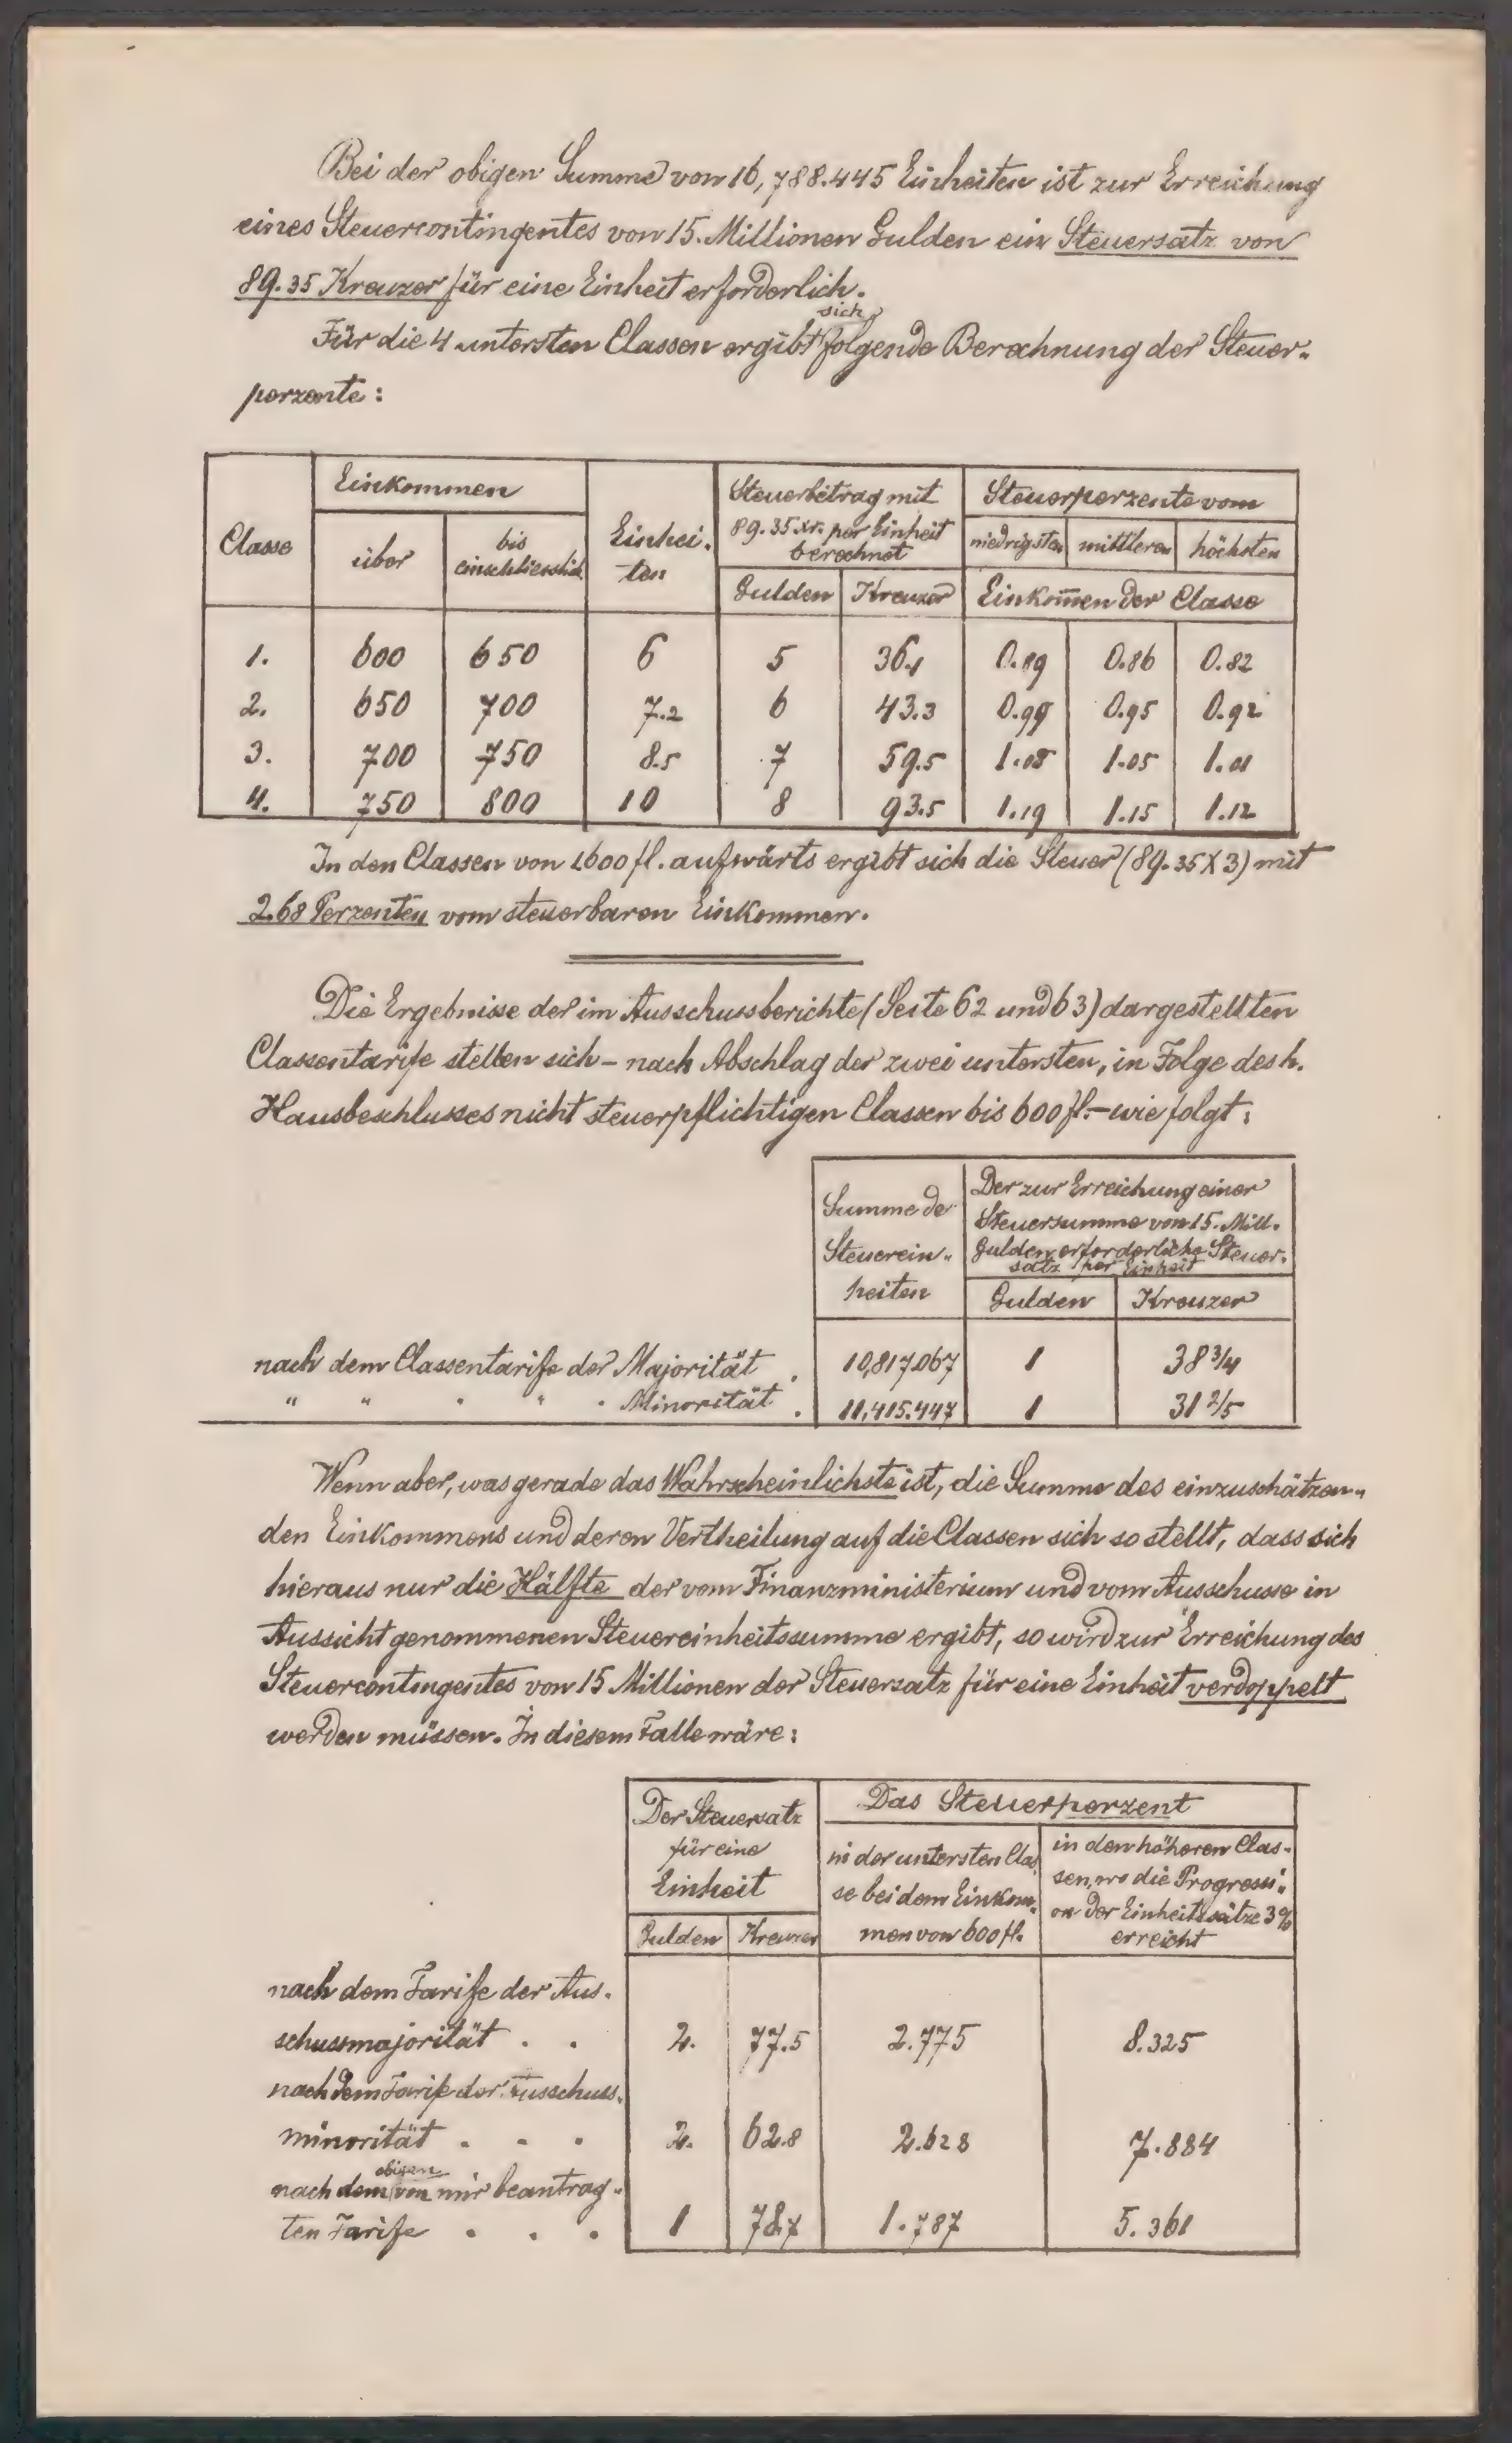 Bei der obigen Summe von 16,788.445 Einheiten ist zur Erreichung
eines Steuercontingentes von 15. Millionen Gulden ein Steuersatz von
89.35 Kreuzer für eine Einheit erforderlich.
Für die 4 untersten Classen ergibt sich folgende Berechnung der Steuer-
perzente:
Classe | Einkommen | Einhei- | Steuerbetrag mit | Steuerperzente vom
über | bis einschliesslich | ten | 89.35 xr. per Einheit berechnet | niedrigsten | mittleren | höchsten
Gulden | Kreuzer | Einkom̅en der Classe
1. 600 650 6 5 36.1 0.89 0.86 0.82
2. 650 700 7.2 6 43.3 0.99 0.95 0.92
3. 700 750 8.5 7 59.5 1.08 1.05 1.01
4. 750 800 10 8 93.5 1.19 1.15 1.12
In den Classen von 1600 fl. aufwärts ergibt sich die Steuer (89.35 X 3) mit
2.68 Perzenten vom steuerbaren Einkommen.
Die Ergebnisse der im Ausschussberichte (Seite 62 und 63) dargestellten
Classentarife stellen sich – nach Abschlag der zwei untersten, in Folge des h.
Hausbeschlusses nicht steuerpflichtigen Classen bis 600 fl. – wie folgt:
Summe der
Steuerein-
heiten
Der zur Erreichung einer
Steuersumme von 15. Mill.
Gulden erforderliche Steuer-
satz per Einheit
Gulden | Kreuzer
nach dem Classentarife der Majorität . 10,817.067 1 38 3/4
" " " " " Minorität . 11,415.447 1 31 2/5
Wenn aber, was gerade das Wahrscheinlichste ist, die Summe des einzuschätzen-
den Einkommens und deren Vertheilung auf die Classen sich so stellt, dass sich
hieraus nur die Hälfte der vom Finanzministerium und vom Ausschusse in
Aussicht genommenen Steuereinheitssumme ergibt, so wird zur Erreichung des
Steuercontingentes von 15 Millionen der Steuersatz für eine Einheit verdoppelt
werden müssen. In diesem Falle wäre:
Der Steuersatz
für eine
Einheit
Gulden | Kreuzer
Das Steuerperzent
in der untersten Clas-
se bei dem Einkom-
men von 600 fl.
in den höheren Clas-
sen, wo die Progressi-
on der Einheitssätze 3%
erreicht
nach dem Tarife der Aus-
schussmajorität . . 2. 77.5 2.775 8.325
nach dem Tarife der Ausschuss-
minorität . . . 2. 62.8 2.628 7.884
nach dem obigen von mir beantrag-
ten Tarife . . . 1 78.7 1.787 5.361